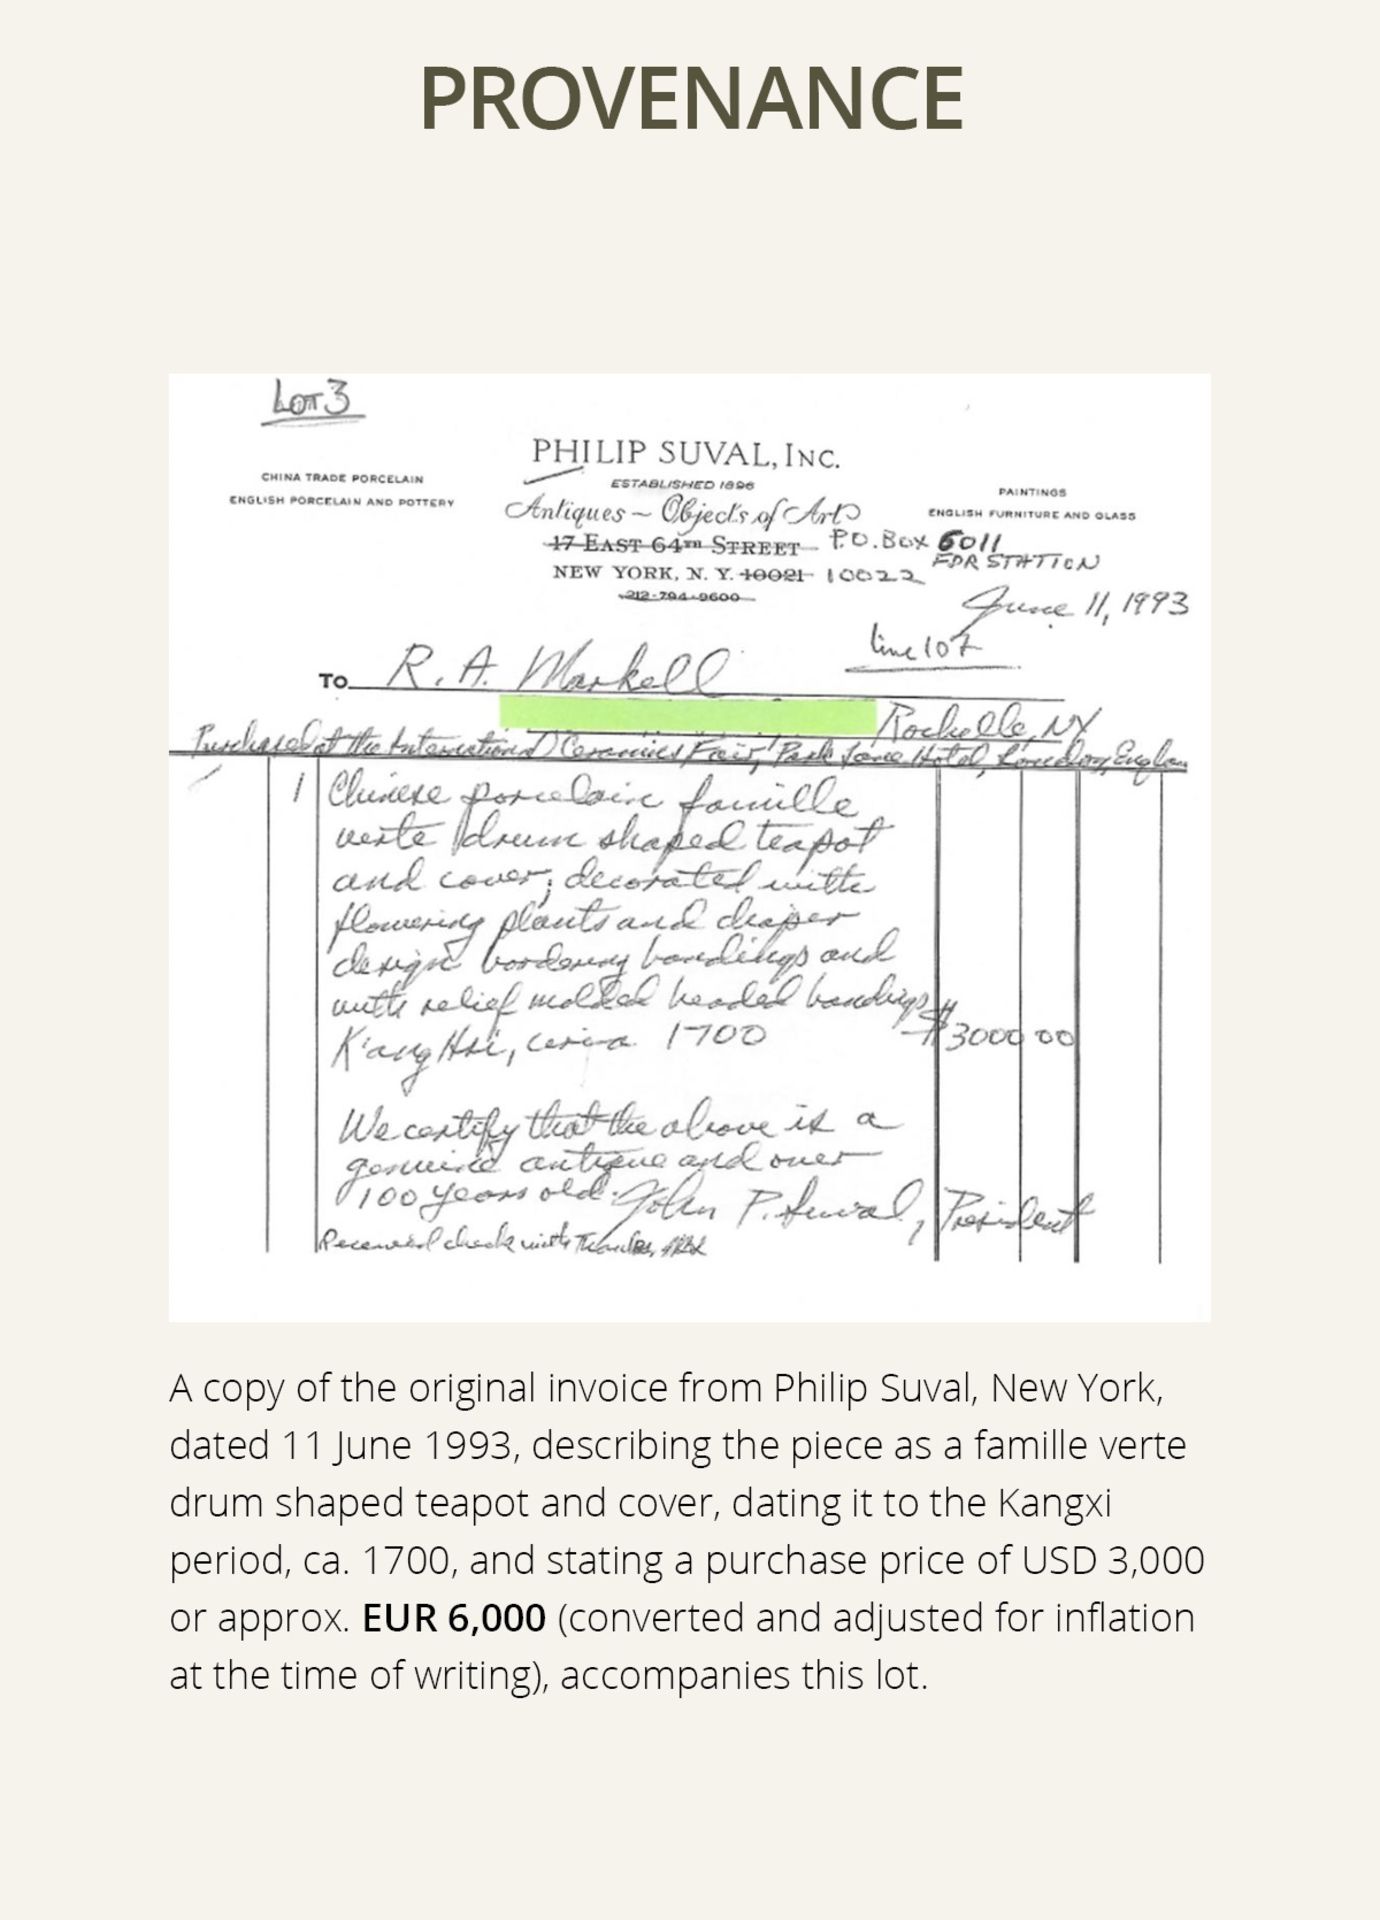 PROVENANCE
Lot 3
PHILIP SUVAL, INC.
ESTABLISHED 1896
CHINA TRADE PORCELAIN
ENGLISH PORCELAIN AND POTTERY
Antiques ~ Objects of Art
PAINTINGS
ENGLISH FURNITURE AND GLASS
17 EAST 64TH STREET P.O. Box 6011
FDR STATION
NEW YORK, N. Y. 10021 10022
212-794-9600
June 11, 1993
line 107
TO R. A. Markell
Rochelle, NY
Purchased at the International Ceramics Fair, Park Lane Hotel, London, Englan
1 Chinese porcelain famille
verte drum shaped teapot
and cover, decorated with
flowering plants and diaper
design bordering bandings and
with relief molded beaded bandings
K'ang Hsi, circa 1700 $3000 00
We certify that the above is a
genuine antique and over
100 years old. John P. Suval, President
Received check with Thanks,
A copy of the original invoice from Philip Suval, New York,
dated 11 June 1993, describing the piece as a famille verte
drum shaped teapot and cover, dating it to the Kangxi
period, ca. 1700, and stating a purchase price of USD 3,000
or approx. EUR 6,000 (converted and adjusted for inflation
at the time of writing), accompanies this lot.